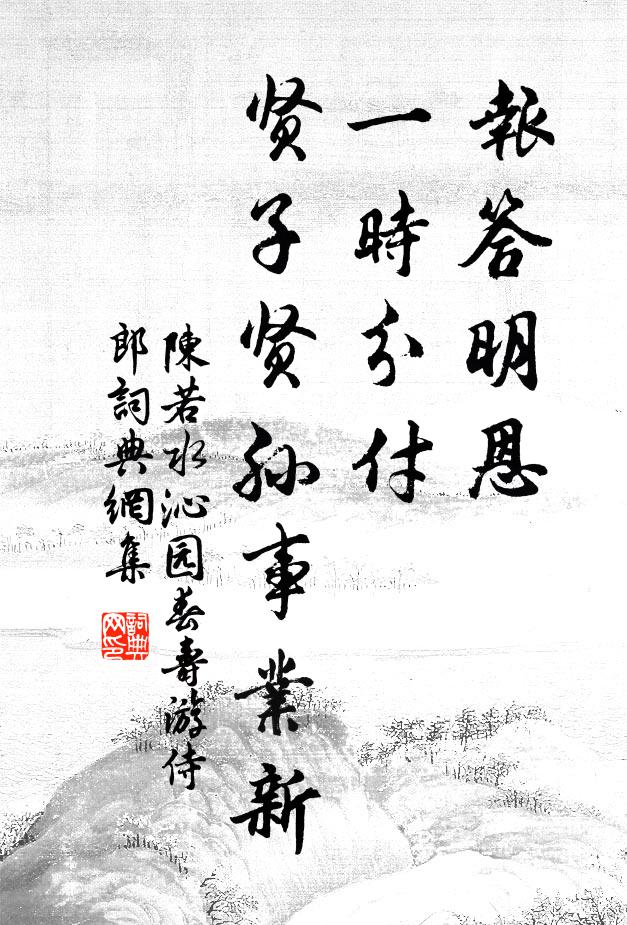 報答明恩
一時分付
贤子贤孙事業新
陳若水沁园春壽游侍
郎詞典網集
詞典网印